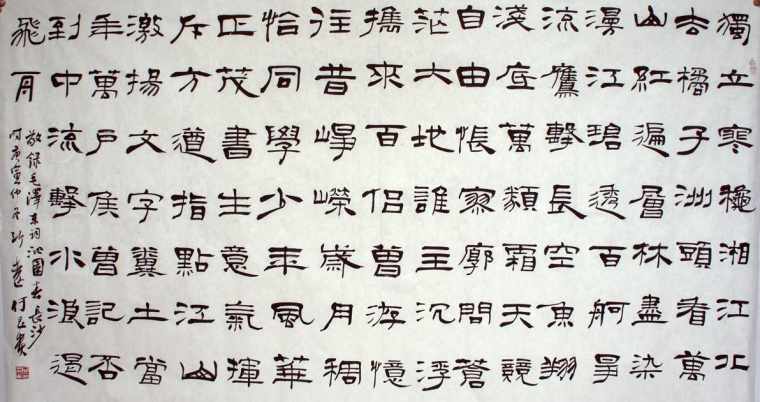 獨立寒穐湘江北
去橘子洲頭看萬
山紅遍層林盡染
漫江碧透百舸爭
流鷹擊長空魚翔
淺底萬類霜天競
自由悵寥廓問蒼
茫大地誰主沉浮
攜來百侶曾游憶
往昔崢嶸歲月稠
恰同學少年風華
正茂書生意氣揮
斥方遒指點江山
激揚文字糞土當
年萬戶侯曾記否
到中流擊水浪遏
飛舟
敬錄毛澤東詞沁園春長沙
時庚寅仲冬